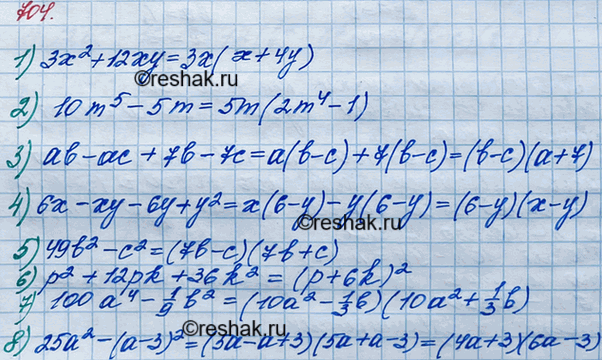 704.
1) 3x² + 12xy = 3x(x + 4y)
©reshak.ru
2) 10m⁵ - 5m = 5m(2m⁴ - 1)
3) ab - ac + 7b - 7c = a(b - c) + 7(b - c) = (b - c)(a + 7)
4) 6x - xy - 6y + y² = x(6 - y) - y(6 - y) = (6 - y)(x - y)
©reshak.ru
5) 49b² - c² = (7b - c)(7b + c)
6) p² + 12pk + 36k² = (p + 6k)²
7) 100a⁴ - 1/9 b² = (10a² - 1/3 b)(10a² + 1/3 b)
©reshak.ru
8) 25a² - (a - 3)² = (5a - a + 3)(5a + a - 3) = (4a + 3)(6a - 3)